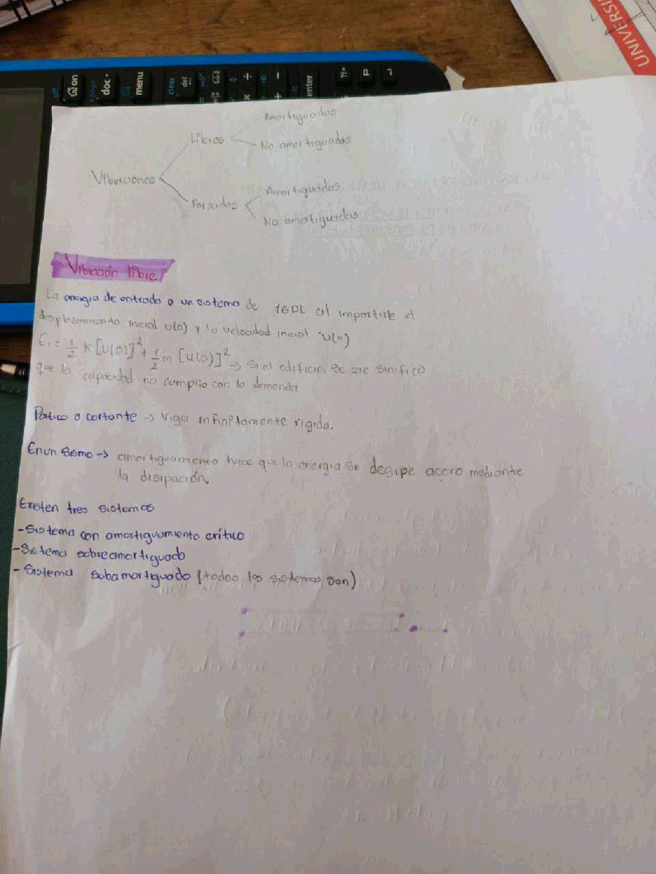 UNIVERSI
on
doc
menu
clear
del
enter
Amortiguadas
Libres
No amortiguadas
Vibraciones
Amortiguadas
Forzadas
No amortiguadas
Vibración libre
La energia de entrada a un sistema de 1GDL al impartirle el
desplazamiento inicial u(0) y la velocidad inicial u̇(0)
E₁ = 1/2 K[u(0)]² + 1/2 m [u̇(0)]² → Si el edificio se cae
que la capacidad no cumplio con la demanda
Portico a cortante → Viga infinitamente rigida.
En un sismo → amortiguamiento hace que la energia se desipe acero mediante
la disipación.
Existen tres sistemas
- Sistema con amortiguamiento crítico
- Sistema sobreamortiguado
- Sistema subamortiguado (todos los sistemas son)